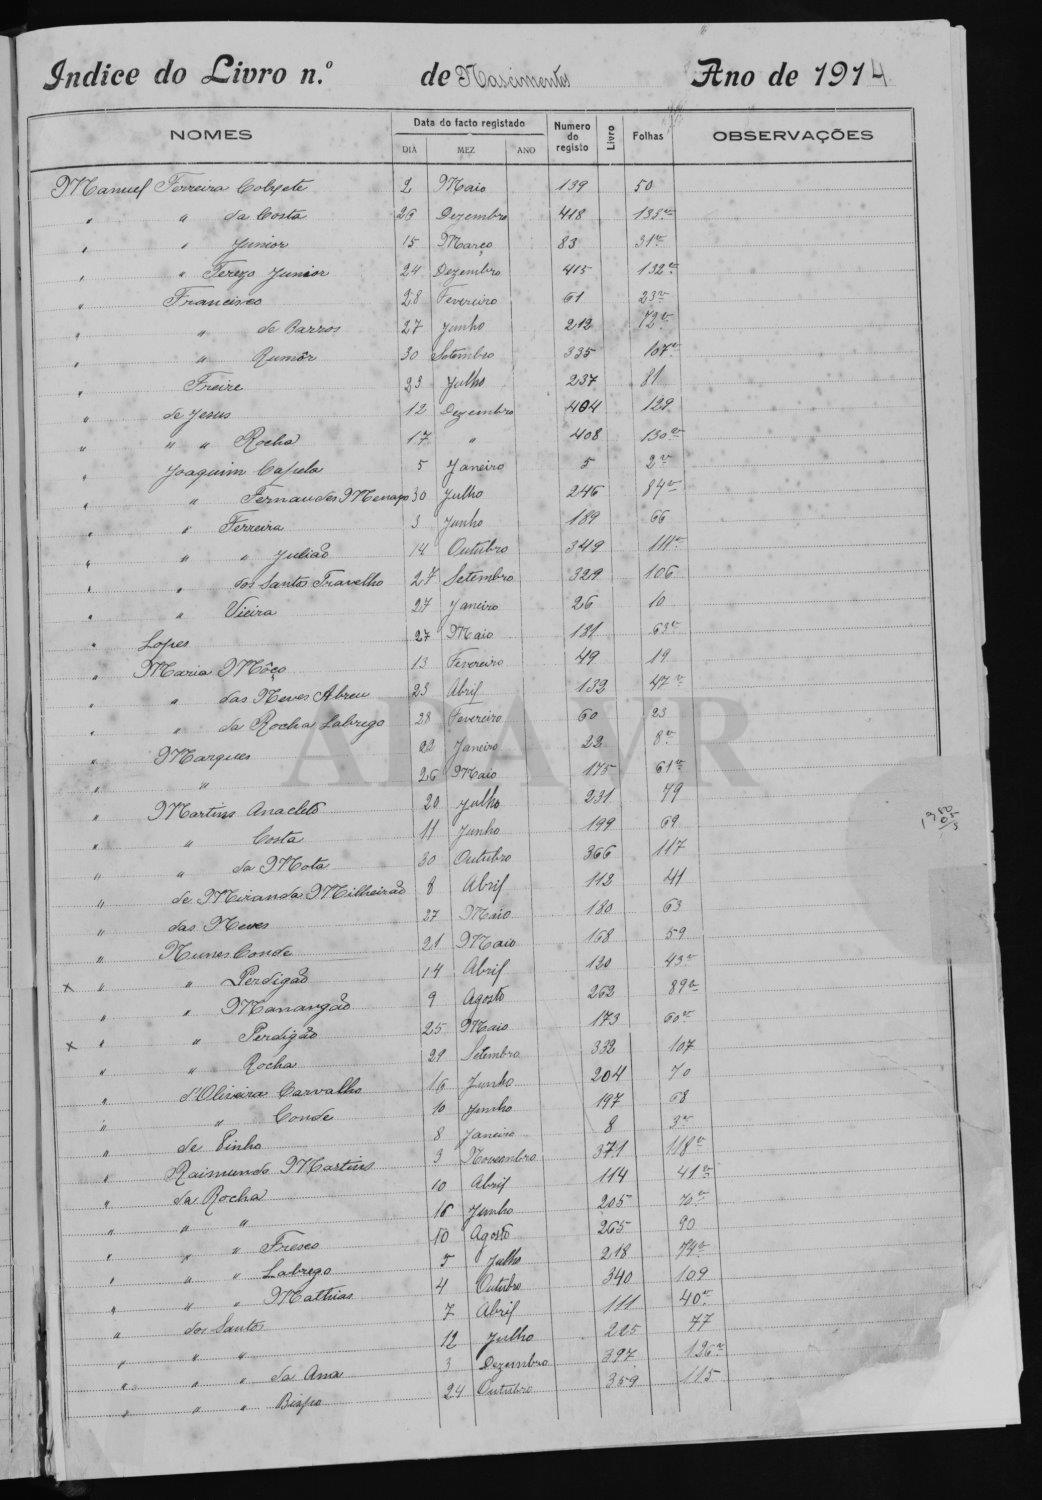 Indice do Livro n.º de Nascimentos Ano de 1914
NOMES Data do facto registado Numero do registo Livro Folhas OBSERVAÇÕES
DIA MEZ ANO
Manuel Ferreira 2 Maio 139 50
" " da Costa 26 Dezembro 418 133v
" " Junior 15 Março 83 31v
" " Junior 24 Dezembro 415 132v
" Francisco 28 Fevereiro 61 23v
" " de Barros 27 Junho 212 72v
" " 30 Setembro 335 107v
" Freire 23 Julho 237 81
" de Jesus 12 Dezembro 404 129
" " " Rocha 17 " 408 130v
" Joaquim Capela 5 Janeiro 5 2v
" " Fernandes 30 Julho 246 84v
" " Ferreira 3 Junho 189 66
" " " Julião 14 Outubro 349 111v
" " dos Santos Travelho 27 Setembro 329 106
" " Vieira 27 Janeiro 26 10
" Lopes 27 Maio 181 63v
" Maria Môço 13 Fevereiro 49 19
" " das Neves Abreu 23 Abril 132 47v
" " da Rocha Labrego 28 Fevereiro 60 23
" Marques 22 Janeiro 22 8v
" " 26 Maio 175 61v
" Martins Anacleto 20 Julho 231 79
" " Costa 11 Junho 199 69
" " da Mota 30 Outubro 366 117
" de Miranda Milheirão 8 Abril 112 41
" das Neves 27 Maio 180 63
" Nunes Conde 21 Maio 168 59
x " " Perdigão 14 Abril 120 43v
" " 9 Agosto 262 89v
x " " Perdigão 25 Maio 173 60v
" " Rocha 29 Setembro 332 107
" d'Oliveira Carvalho 16 Junho 204 70
" " Conde 10 Junho 197 68
" de Pinho 8 Janeiro 8 3v
" Raimundo Martins 3 Novembro 371 118v
" da Rocha 10 Abril 114 41v
" " " 16 Junho 205 70v
" " " Fresco 10 Agosto 265 90
" " " Labrego 5 Julho 218 74v
" " " Mathias 4 Outubro 340 109
" dos Santos 7 Abril 111 40v
" " " 12 Julho 225 77
" " " da Ana 3 Dezembro 397 126v
" " " Bispo 24 Outubro 359 115
ADAVR